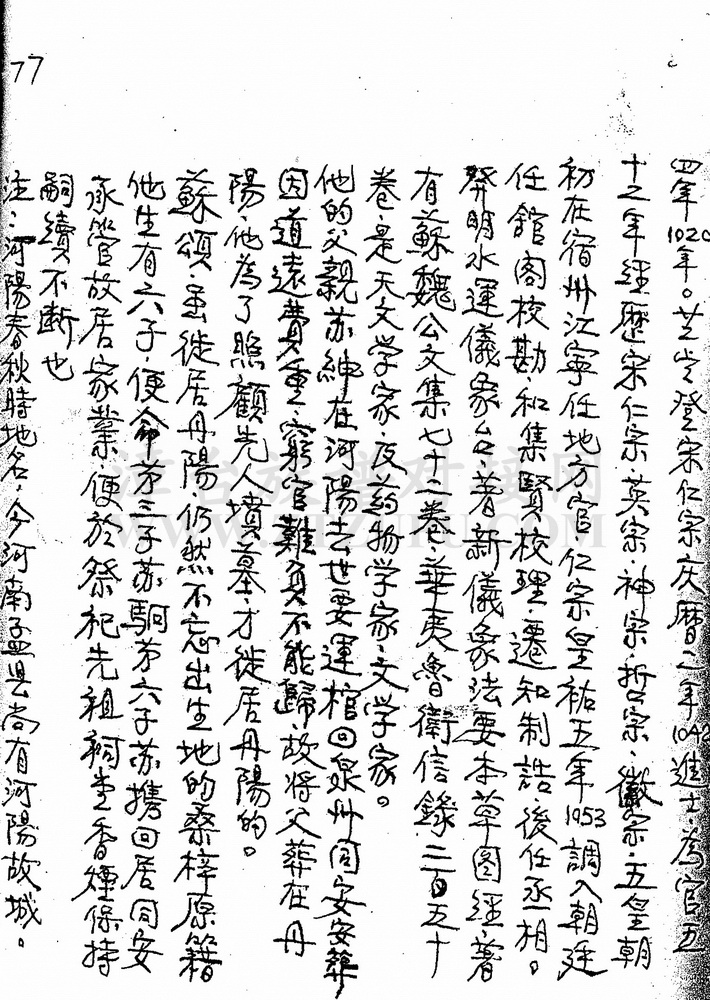 77
四年1020年。芝岁登宋仁宗庆曆二年1042進士,為官五
十之年經歷宋仁宗·英宗·神宗·哲宗·徽宗·五皇朝
初在宿州江寧任地方官仁宗皇祐五年1053調入朝廷
任館閣校勘·和集賢校理·遷知制誥·後任丞相。
發明水運儀象台·著新儀象法要本草图經·著
有蘇魏公文集七十二卷·華夷魯衛信錄二百五十
卷·是天文学家·及药物学家·文学家。
他的父親苏紳在河陽去世要運棺回泉州同安安葬
因道遠費重·窮官難負不能歸·故將父葬在丹
陽·他為了照顧先人墳墓·才徙居丹陽的。
蘇頌·虽徙居丹陽·仍然不忘出生地的桑梓原籍
他生有六子·便命苐三子苏駉苐六子苏携回居同安
承管故居家業·便於祭祀先祖祠堂香煙保持
嗣續不断也
注·河陽春秋時地名·今河南孟县尚有河陽故城。
漳台族谱对接网
WWW.ZTZUPU.COM